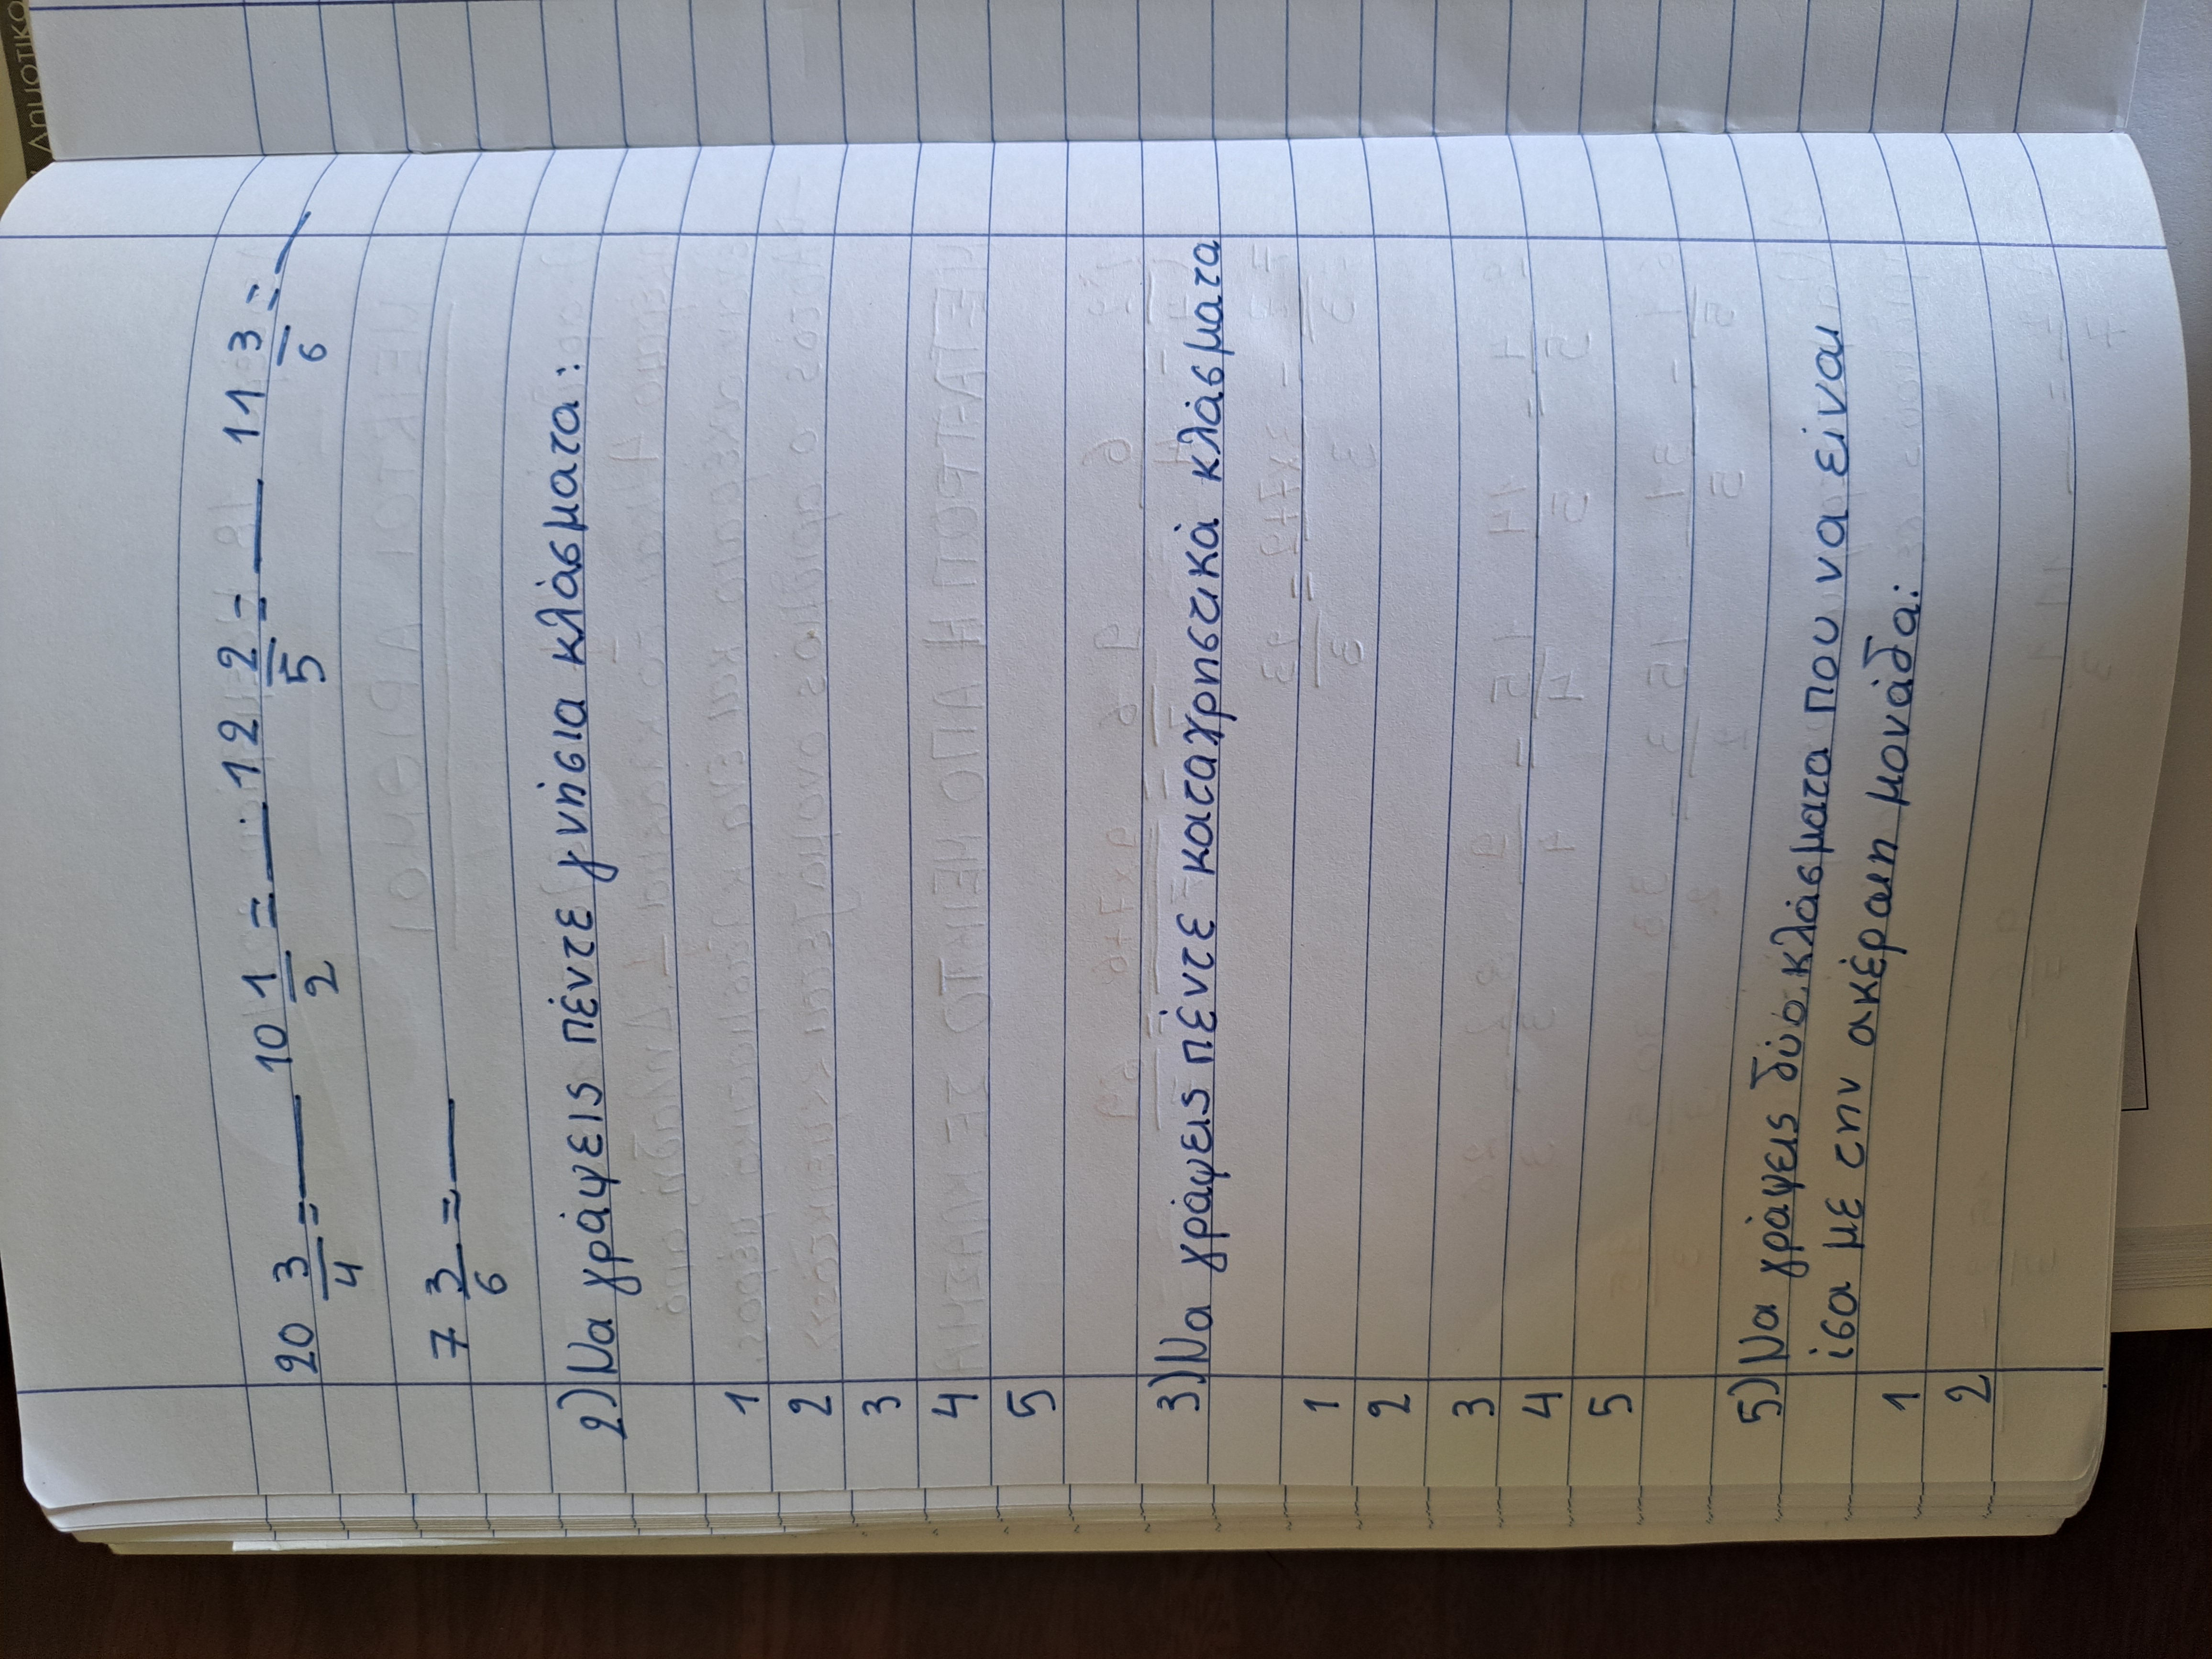 Δημοτικο
20 3/4 = __ 10 1/2 = __ . 12 2/5 = __ 11 3/6 = __
7 3/6 = __
2) Να γράψεις πέντε γνήσια κλάσματα:
1
2
3
4
5
3) Να γράψεις πέντε καταχρηστικά κλάσματα
1
2
3
4
5
5) Να γράψεις δύο κλάσματα που να είναι
ίσα με την ακέραιη μονάδα:
1
2